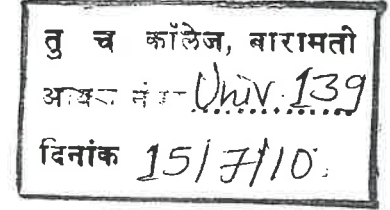 तु च कॉलेज, बारामती
आवक नं - Univ. 139
दिनांक 15/7/10.